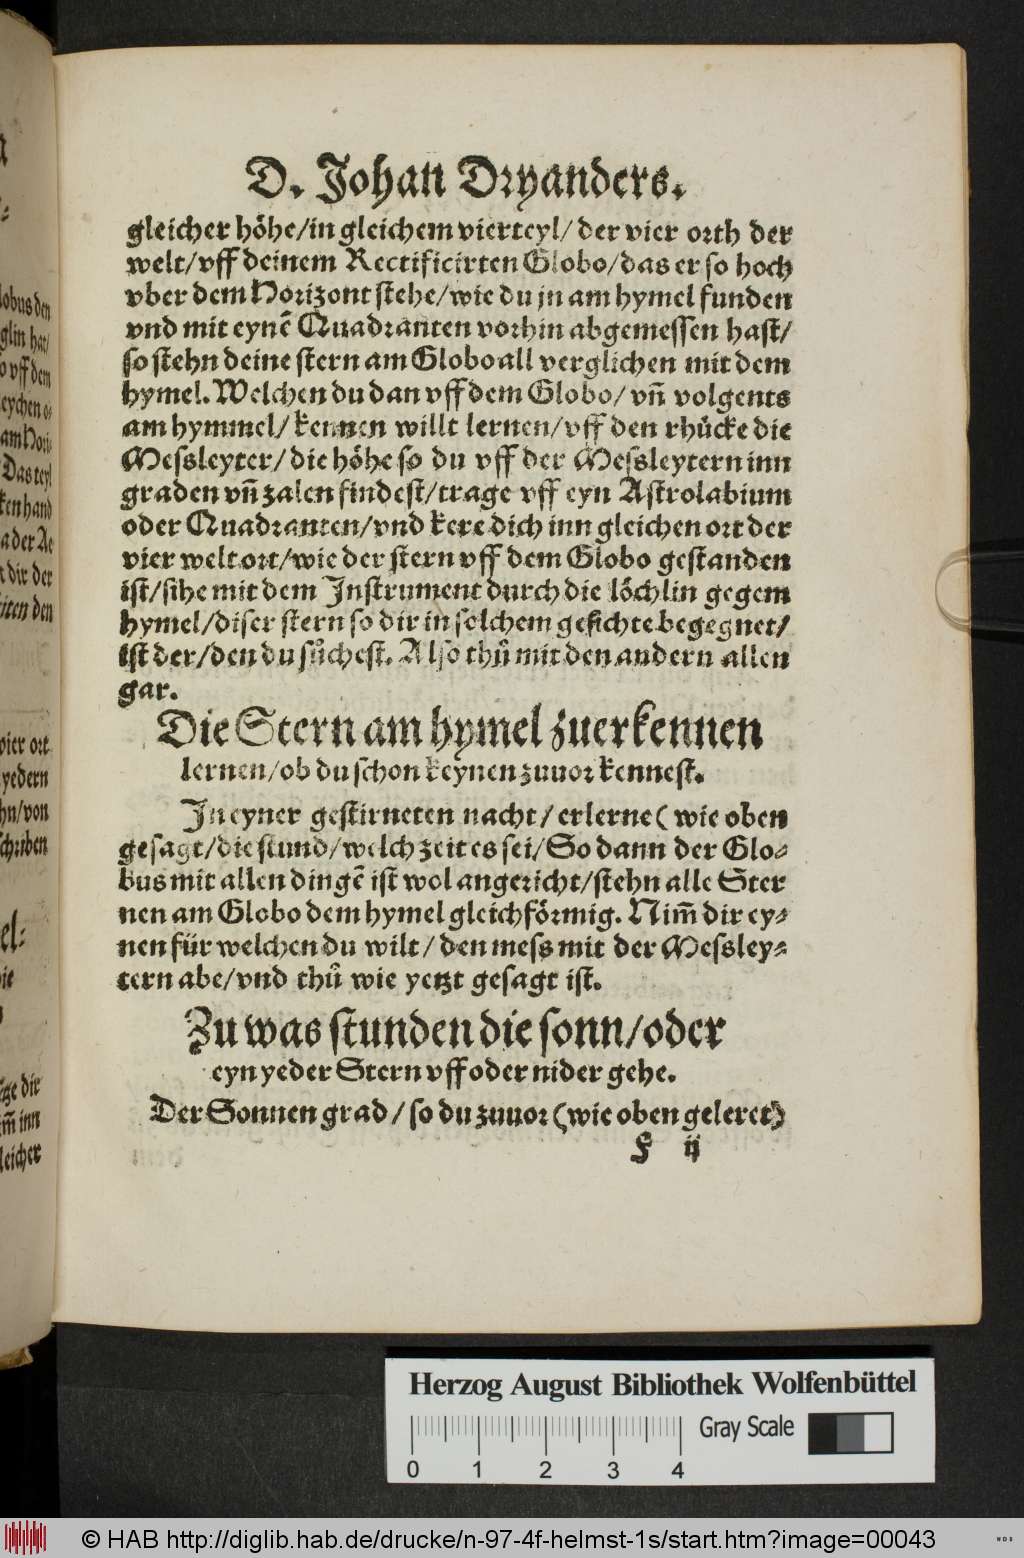 D. Johan Dryanders.
gleicher höhe/in gleichem vierteyl/ der vier orth der
welt/vff deinem Rectificirten Globo/das er so hoch
vber dem Horizont stehe/wie du jn am hymel funden
vnd mit eynē Quadranten vorhin abgemessen hast/
so stehn deine stern am Globo all verglichen mit dem
hymel. Welchen du dan vff dem Globo/ vñ volgents
am hymmel/ kennen willt lernen/vff den rhůcke die
Messleyter/die höhe so du vff der Messleytern inn
graden vñ zalen findest/trage vff eyn Astrolabium
oder Quadranten/vnd kere dich inn gleichen ort der
vier welt ort/wie der stern vff dem Globo gestanden
ist/sihe mit dem Instrument durch die löchlin gegem
hymel/diser stern so dir in solchem gesichte begegnet/
ist der/den du sůchest. Also thů mit den andern allen
gar.
Die Stern am hymel zuerkennen
lernen/ob du schon keynen zuuor kennest.
In eyner gestirneten nacht/ erlerne( wie oben
gesagt/die stund/welch zeit es sei/So dann der Glo-
bus mit allen dingē ist wol angericht/stehn alle Ster
nen am Globo dem hymel gleichförmig. Nim̄ dir ey-
nen für welchen du wilt/ den mess mit der Messley-
tern abe/vnd thů wie yetzt gesagt ist.
Zu was stunden die sonn/oder
eyn yeder Stern vff oder nider gehe.
Der Sonnen grad/ so du zuuor (wie oben geleret)
F ij
lobus den
glin hat/
o vff dem
eychen o-
am Hori-
Das teyl
ken hand
a der Ae
t dir der
iten den
vier ort
yedern
hn/von
schriben
el-
ie
tze dir
m̄ inn
leicher
Herzog August Bibliothek Wolfenbüttel
Gray Scale
0 1 2 3 4
© HAB http://diglib.hab.de/drucke/n-97-4f-helmst-1s/start.htm?image=00043